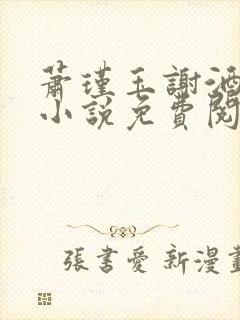 蕭瑾玉謝酒
小說免費閱
張書愛 新漫畫